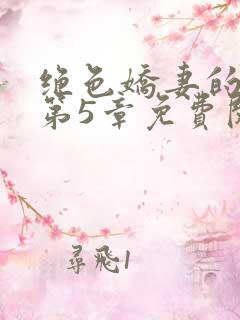 绝色娇妻的
第5章免费阅
寻飞1